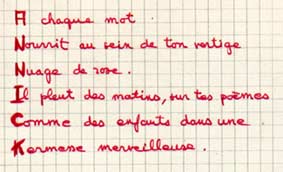 A chaque mot
Nourrit au sein de ton vertige
Nuage de rose.
Il pleut des matins, sur tes poèmes
Comme des enfants dans une
Kermesse merveilleuse.